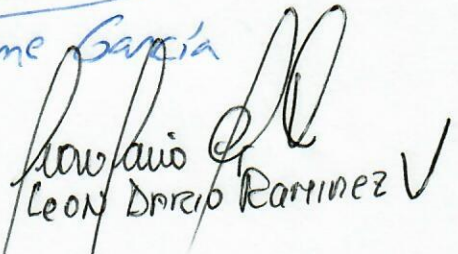 García
LEON DARIO RAMIREZ V